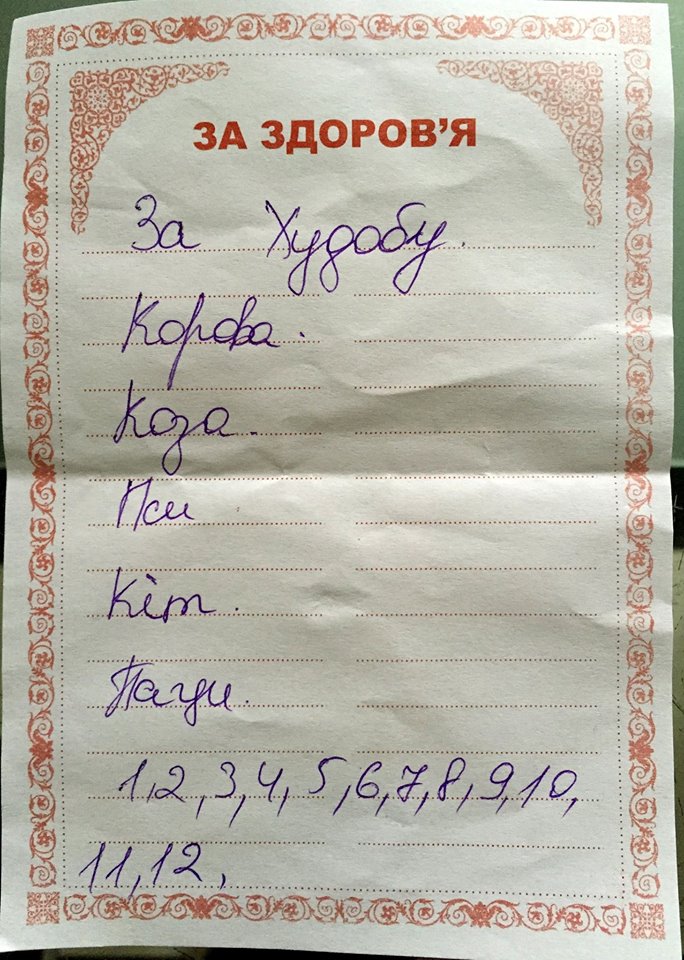 ЗА ЗДОРОВ’Я
За Худобу.
Корова.
Коза.
Пси
Кіт.
Пацци.
1,2,3,4,5,6,7,8,9,10,
11,12,